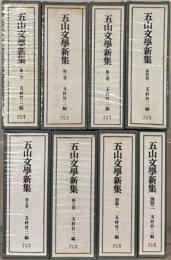 五山文學新集
第一卷
玉村竹二編
五山文學新集
第二卷
玉村竹二編
五山文學新集
第三卷
玉村竹二編
五山文學新集
第四卷
玉村竹二編
五山文學新集
第五卷
玉村竹二編
五山文學新集
第六卷
玉村竹二編
五山文學新集
別卷一
玉村竹二編
五山文學新集
別卷二
玉村竹二編